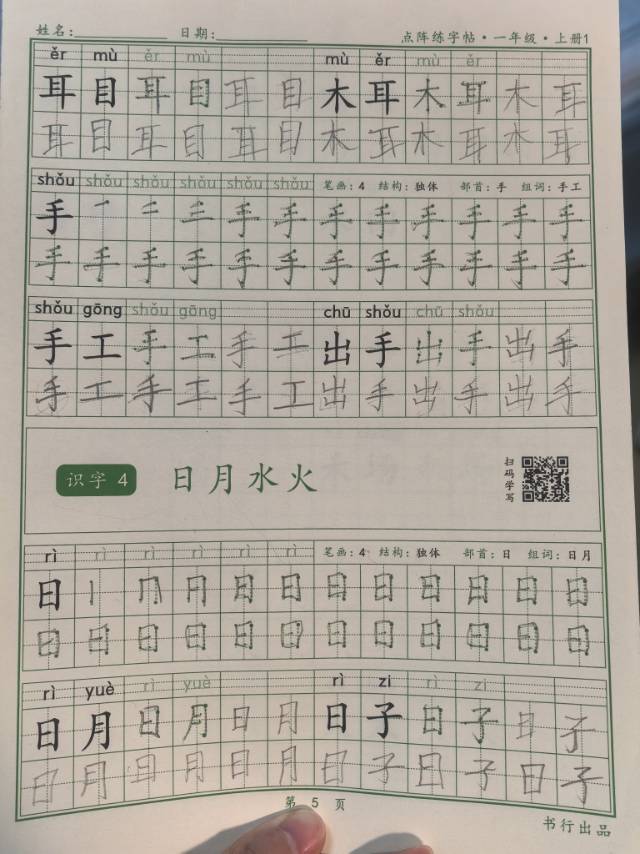 姓名: 日期: 点阵练字帖·一年级·上册1
ěr mù ěr mù mù ěr mù ěr
耳 目 耳 目 耳 目 木 耳 木 耳 木 耳
耳 目 耳 目 耳 目 木 耳 木 耳 木 耳
shǒu shǒu shǒu shǒu shǒu shǒu 笔画:4 结构:独体 部首:手 组词:手工
手 手 手 手 手 手 手 手 手
手 手 手 手 手 手 手 手 手 手 手 手
shǒu gōng shǒu gōng chū shǒu chū shǒu
手 工 手 工 手 工 出 手 出 手 出 手
手 工 手 工 手 工 出 手 出 手 出 手
识字 4 日月水火 扫码学写
rì rì rì rì rì rì 笔画:4 结构:独体 部首:日 组词:日月
日 日 日 日 日 日 日 日 日
日 日 日 日 日 日 日 日 日 日 日 日
rì yuè rì yuè rì zi rì zi
日 月 日 月 日 月 日 子 日 子 日 子
日 月 日 月 日 月 日 子 日 子 日 子
第 5 页
书行出品